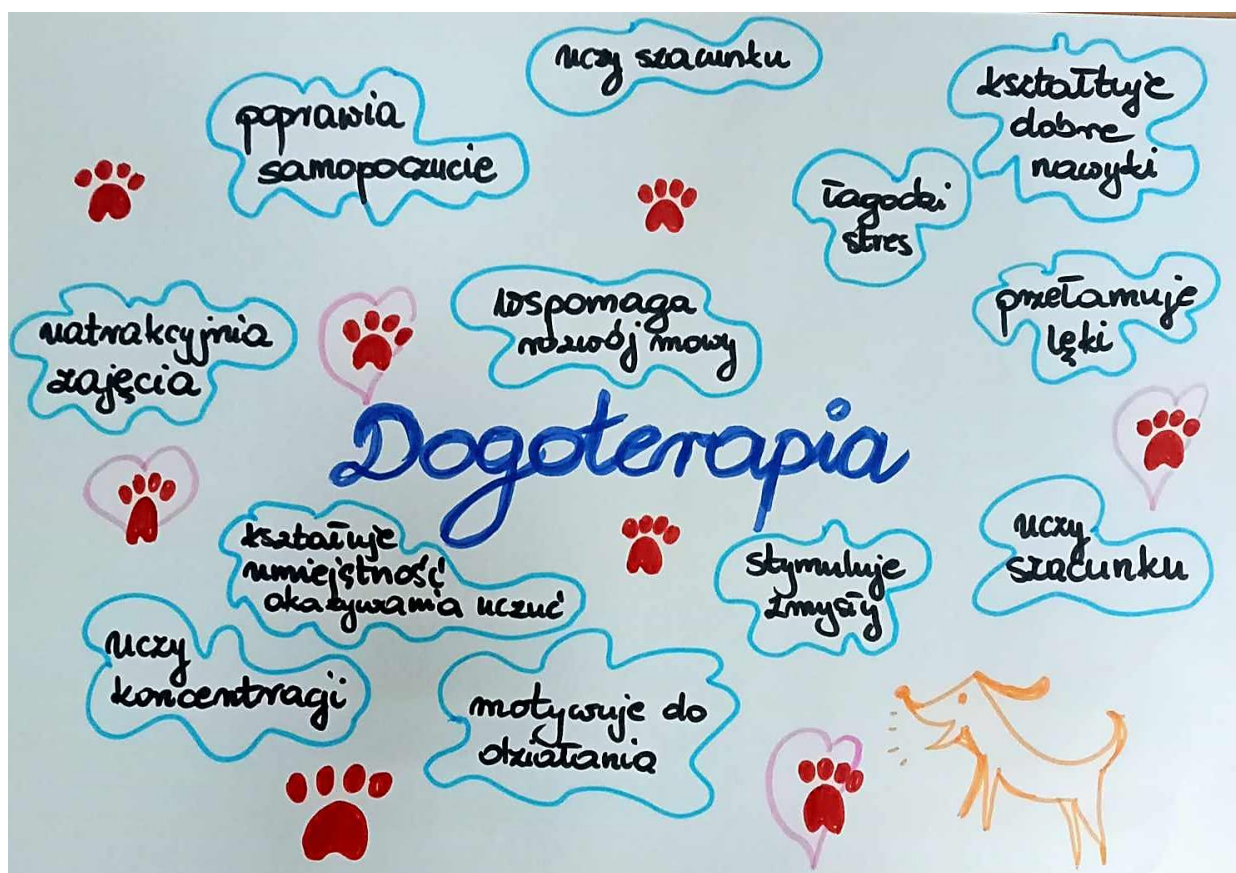 uczy szacunku
poprawia
samopoczucie
kształtuje
dobre
nawyki
łagodzi
stres
uatrakcyjnia
zajęcia
wspomaga
rozwój mowy
przełamuje
lęki
Dogoterapia
kształtuje
umiejętność
okazywania uczuć
stymuluje
zmysły
uczy
szacunku
uczy
koncentracji
motywuje do
działania